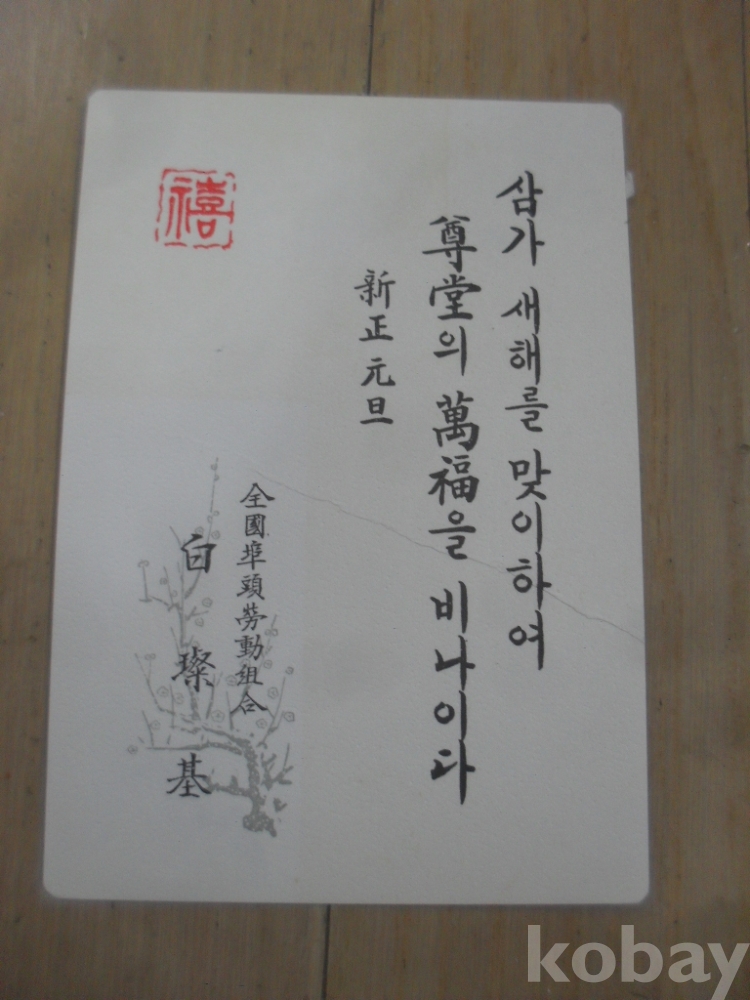 삼가 새해를 맞이하여
尊堂의 萬福을 비나이다
新正 元旦
全國埠頭勞動組合
白 璨 基
禧
kobay